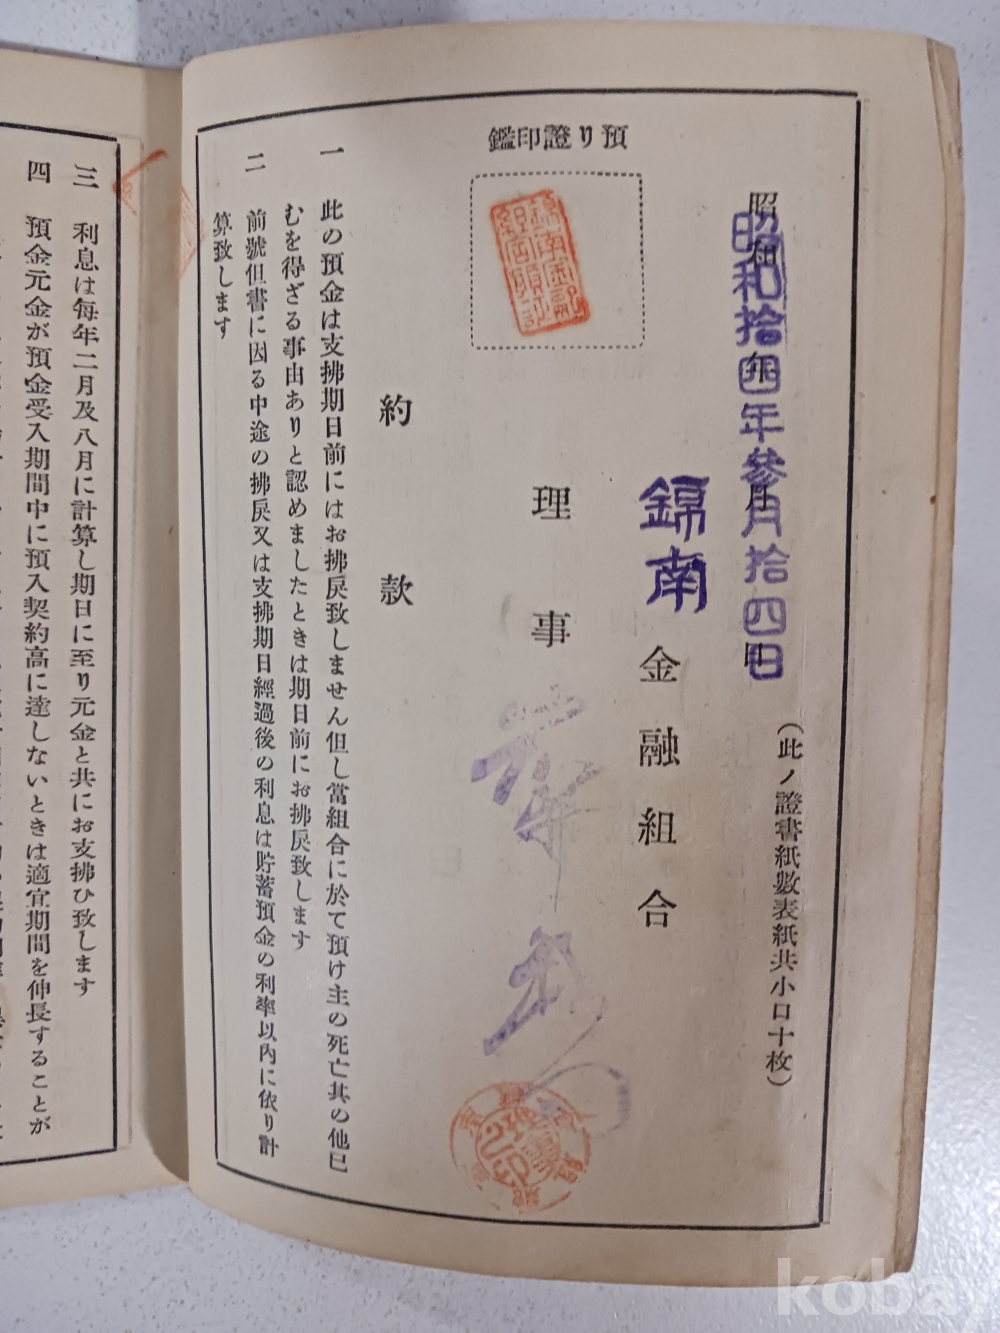 昭和拾四年參月拾四日
昭和 年 月 日
(此ノ證書紙數表紙共小口十枚)
錦南金融組合
理事
預り證印鑑
錦南金融組合預証
約款
一 此の預金は支拂期日前にはお拂戾致しません但し當組合に於て預け主の死亡其の他已
むを得ざる事由ありと認めましたときは期日前にお拂戾致します
二 前號但書に因る中途の拂戾又は支拂期日經過後の利息は貯蓄預金の利率以內に依り計
算致します
三 利息は每年二月及八月に計算し期日に至り元金と共にお支拂ひ致します
四 預金元金が預金受入期間中に預入契約高に達しないときは適宜期間を伸長することが
koba